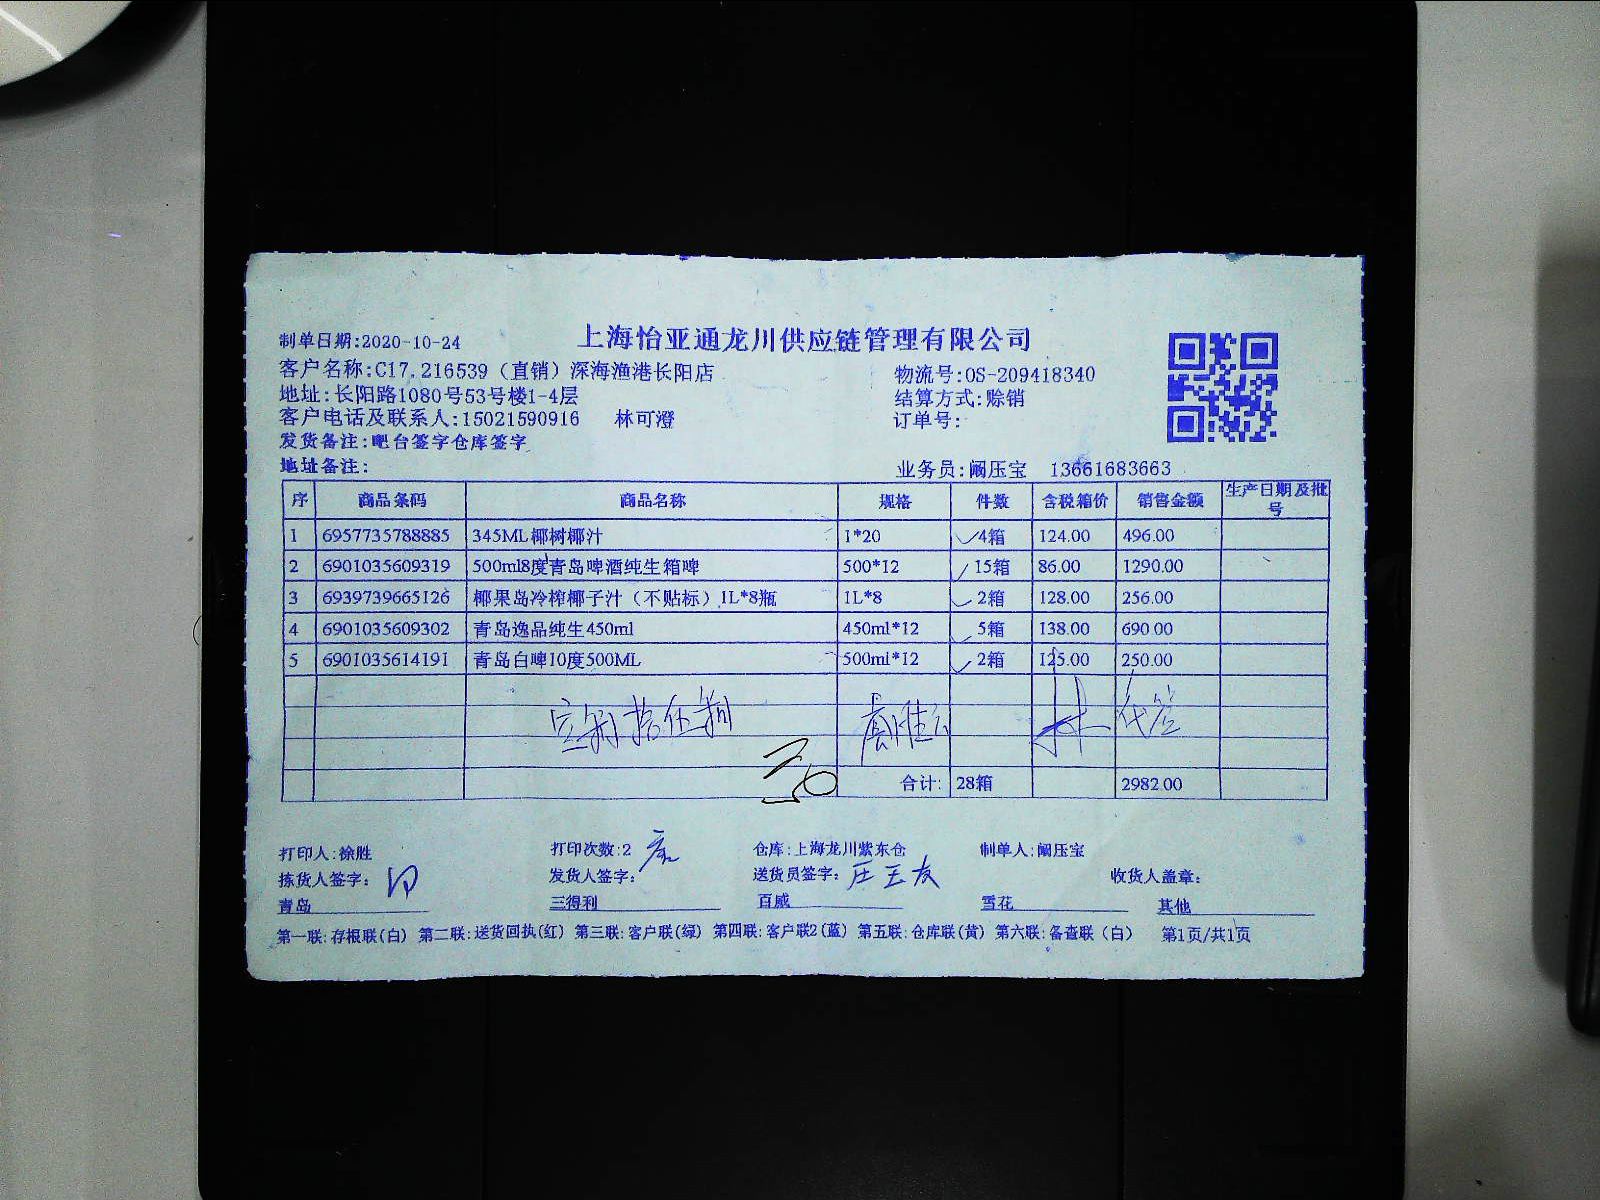 上海怡亚通龙川供应链管理有限公司
制单日期:2020-10-24
客户名称:C17.216539（直销）深海渔港长阳店 物流号:OS-209418340
地址:长阳路1080号53号楼1-4层 结算方式:赊销
客户电话及联系人:15021590916 林可澄 订单号:
发货备注:吧台签字仓库签字
地址备注: 业务员:阚压宝 13661683663
序 商品条码 商品名称 规格 件数 含税箱价 销售金额 生产日期及批号
1 6957735788885 345ML椰树椰汁 1*20 4箱 124.00 496.00
2 6901035609319 500ml8度青岛啤酒纯生箱啤 500*12 15箱 86.00 1290.00
3 6939739665126 椰果岛冷榨椰子汁（不贴标）1L*8瓶 1L*8 2箱 128.00 256.00
4 6901035609302 青岛逸品纯生450ml 450ml*12 5箱 138.00 690.00
5 6901035614191 青岛白啤10度500ML 500ml*12 2箱 125.00 250.00
合计: 28箱 2982.00
打印人:徐胜 打印次数:2 仓库:上海龙川紫东仓 制单人:阚压宝
拣货人签字: 发货人签字: 送货员签字: 收货人盖章:
青岛 三得利 百威 雪花 其他
第一联:存根联(白) 第二联:送货回执(红) 第三联:客户联(绿) 第四联:客户联2(蓝) 第五联:仓库联(黄) 第六联:备查联（白） 第1页/共1页